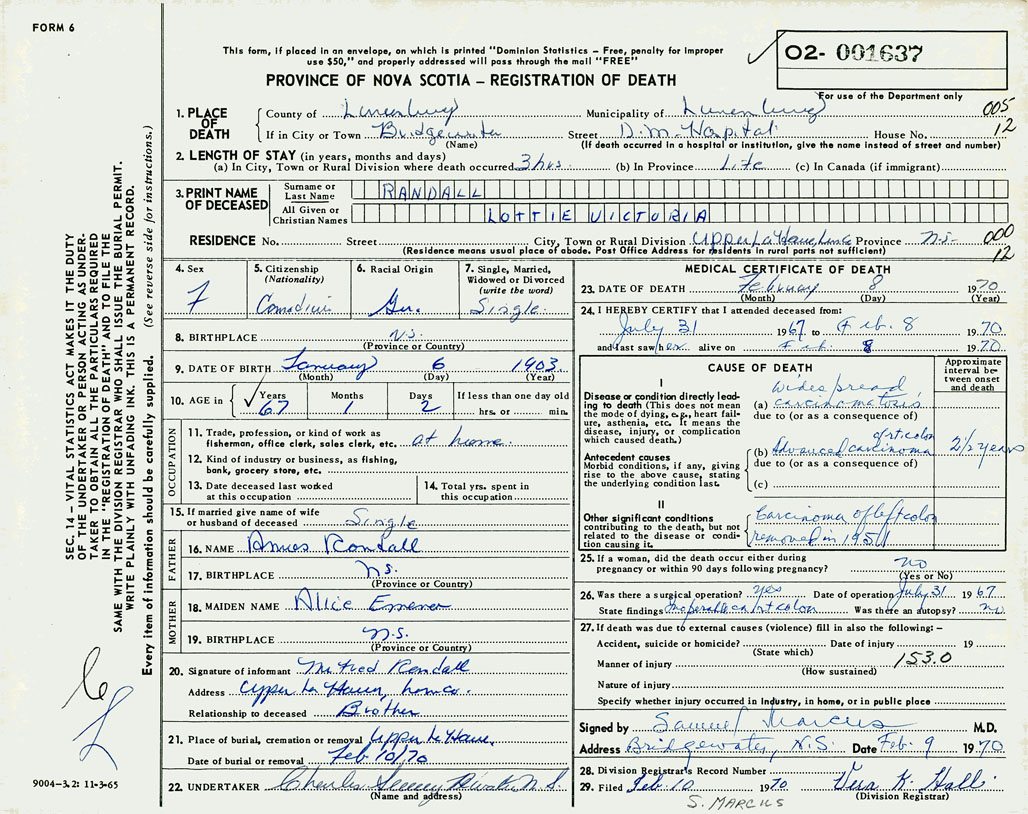 FORM 6
This form, if placed in an envelope, on which is printed "Dominion Statistics – Free, penalty for improper
use $50," and properly addressed will pass through the mail "FREE"
O2- 001637
PROVINCE OF NOVA SCOTIA – REGISTRATION OF DEATH
For use of the Department only
1. PLACE OF DEATH
County of Lunenburg Municipality of Lunenburg 005
If in City or Town Bridgewater Street D.M. Hospital House No. 12
(Name) (If death occurred in a hospital or institution, give the name instead of street and number)
2. LENGTH OF STAY (in years, months and days)
(a) In City, Town or Rural Division where death occurred 3 hrs. (b) In Province Life (c) In Canada (if immigrant)
3. PRINT NAME OF DECEASED
Surname or Last Name RANDALL
All Given or Christian Names LOTTIE VICTORIA
RESIDENCE No. Street City, Town or Rural Division Upper La Have Province N.S. 000
(Residence means usual place of abode. Post Office Address for residents in rural parts not sufficient) 12
4. Sex F
5. Citizenship (Nationality) Canadian
6. Racial Origin Ger.
7. Single, Married, Widowed or Divorced (write the word) Single
8. BIRTHPLACE N.S.
(Province or Country)
9. DATE OF BIRTH January 6 1903
(Month) (Day) (Year)
10. AGE in Years 67 Months 1 Days 2 If less than one day old hrs. or min.
OCCUPATION
11. Trade, profession, or kind of work as
fisherman, office clerk, sales clerk, etc. at home
12. Kind of industry or business, as fishing,
bank, grocery store, etc.
13. Date deceased last worked
at this occupation
14. Total yrs. spent in
this occupation
15. If married give name of wife
or husband of deceased Single
FATHER
16. NAME Randall
17. BIRTHPLACE N.S.
(Province or Country)
MOTHER
18. MAIDEN NAME Alice
19. BIRTHPLACE N.S.
(Province or Country)
20. Signature of informant Fred Randall
Address Upper La Have,
Relationship to deceased Brother
21. Place of burial, cremation or removal Upper La Have.
Date of burial or removal Feb 10/70
22. UNDERTAKER Charles N.S.
(Name and address)
MEDICAL CERTIFICATE OF DEATH
23. DATE OF DEATH February 8 1970
(Month) (Day) (Year)
24. I HEREBY CERTIFY that I attended deceased from:
July 31 1967 to Feb. 8 1970
and last saw her alive on Feb. 8 1970
CAUSE OF DEATH
Approximate interval between onset and death
I
Disease or condition directly leading to death (This does not mean the mode of dying, e.g., heart failure, asthenia, etc. It means the disease, injury, or complication which caused death.)
(a) Widespread carcinomatosis
due to (or as a consequence of)
Antecedent causes
Morbid conditions, if any, giving rise to the above cause, stating the underlying condition last.
(b) Advanced carcinoma of rt. colon 2 1/2 years
due to (or as a consequence of)
(c)
II
Other significant conditions contributing to the death, but not related to the disease or condition causing it.
Carcinoma of left colon
removed in 1951
25. If a woman, did the death occur either during
pregnancy or within 90 days following pregnancy? no
(Yes or No)
26. Was there a surgical operation? yes Date of operation July 31 1967
State findings Inoperable ca rt colon Was there an autopsy? no
27. If death was due to external causes (violence) fill in also the following: –
Accident, suicide or homicide? Date of injury 19
(State which)
Manner of injury 153.0
(How sustained)
Nature of injury
Specify whether injury occurred in industry, in home, or in public place
Signed by Samuel Marcus M.D.
Address Bridgewater, N.S. Date Feb. 9 1970
28. Division Registrar's Record Number
29. Filed Feb. 10 1970 Vera K. Hall
(Division Registrar)
S. MARCUS
SEC. 14 – VITAL STATISTICS ACT MAKES IT THE DUTY
OF THE UNDERTAKER OR PERSON ACTING AS UNDER-
TAKER TO OBTAIN ALL THE PARTICULARS REQUIRED
IN THE "REGISTRATION OF DEATH" AND TO FILE THE
SAME WITH THE DIVISION REGISTRAR WHO SHALL ISSUE THE BURIAL PERMIT.
WRITE PLAINLY WITH UNFADING INK. THIS IS A PERMANENT RECORD.
Every item of information should be carefully supplied. (See reverse side for instructions.)
9004-3.2: 11-3-65